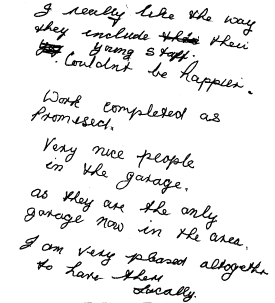 I really like the way
they include their
young staff.
Couldnt be happier.
Work completed as
Promised.
Very nice people
in the garage.
as they are the only
garage now in the area.
I am very pleased altogether
to have them
locally.